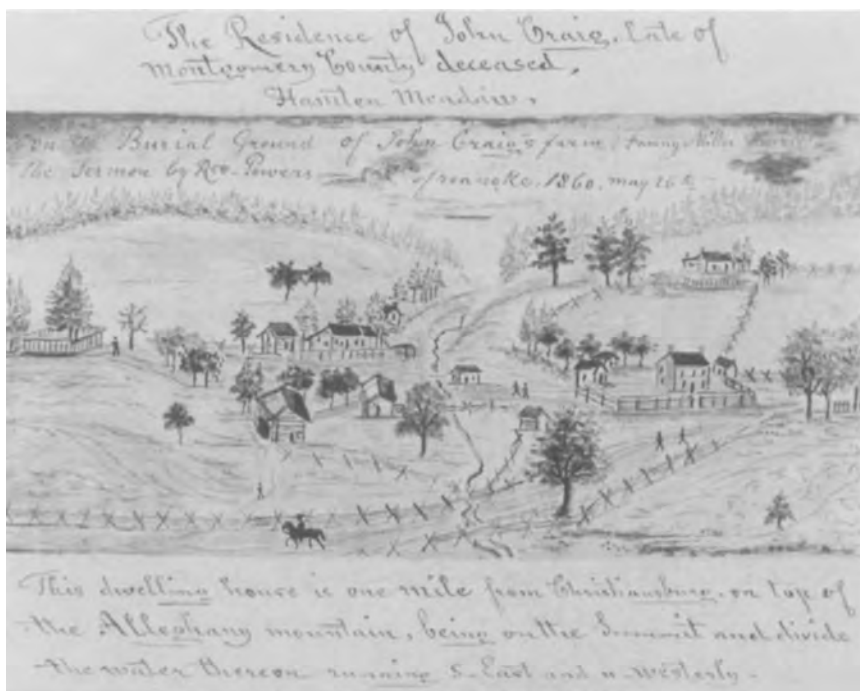 The Residence of John Craig, late of
Montgomery County deceased,
Hamten Meadow,
on the Burial Ground of John Craig's farm, Fanny Miller
the Sermon by Rev. Powers of roanoke, 1860, may 26th
This dwelling house is one mile from Christiansburg, on top of
the Alleghany mountain, being on the Summit and divide
the water thereon running S-East and n-westerly-